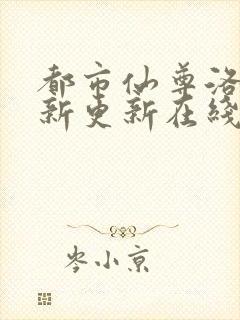 都市仙尊洛
新更新在线
岑小京